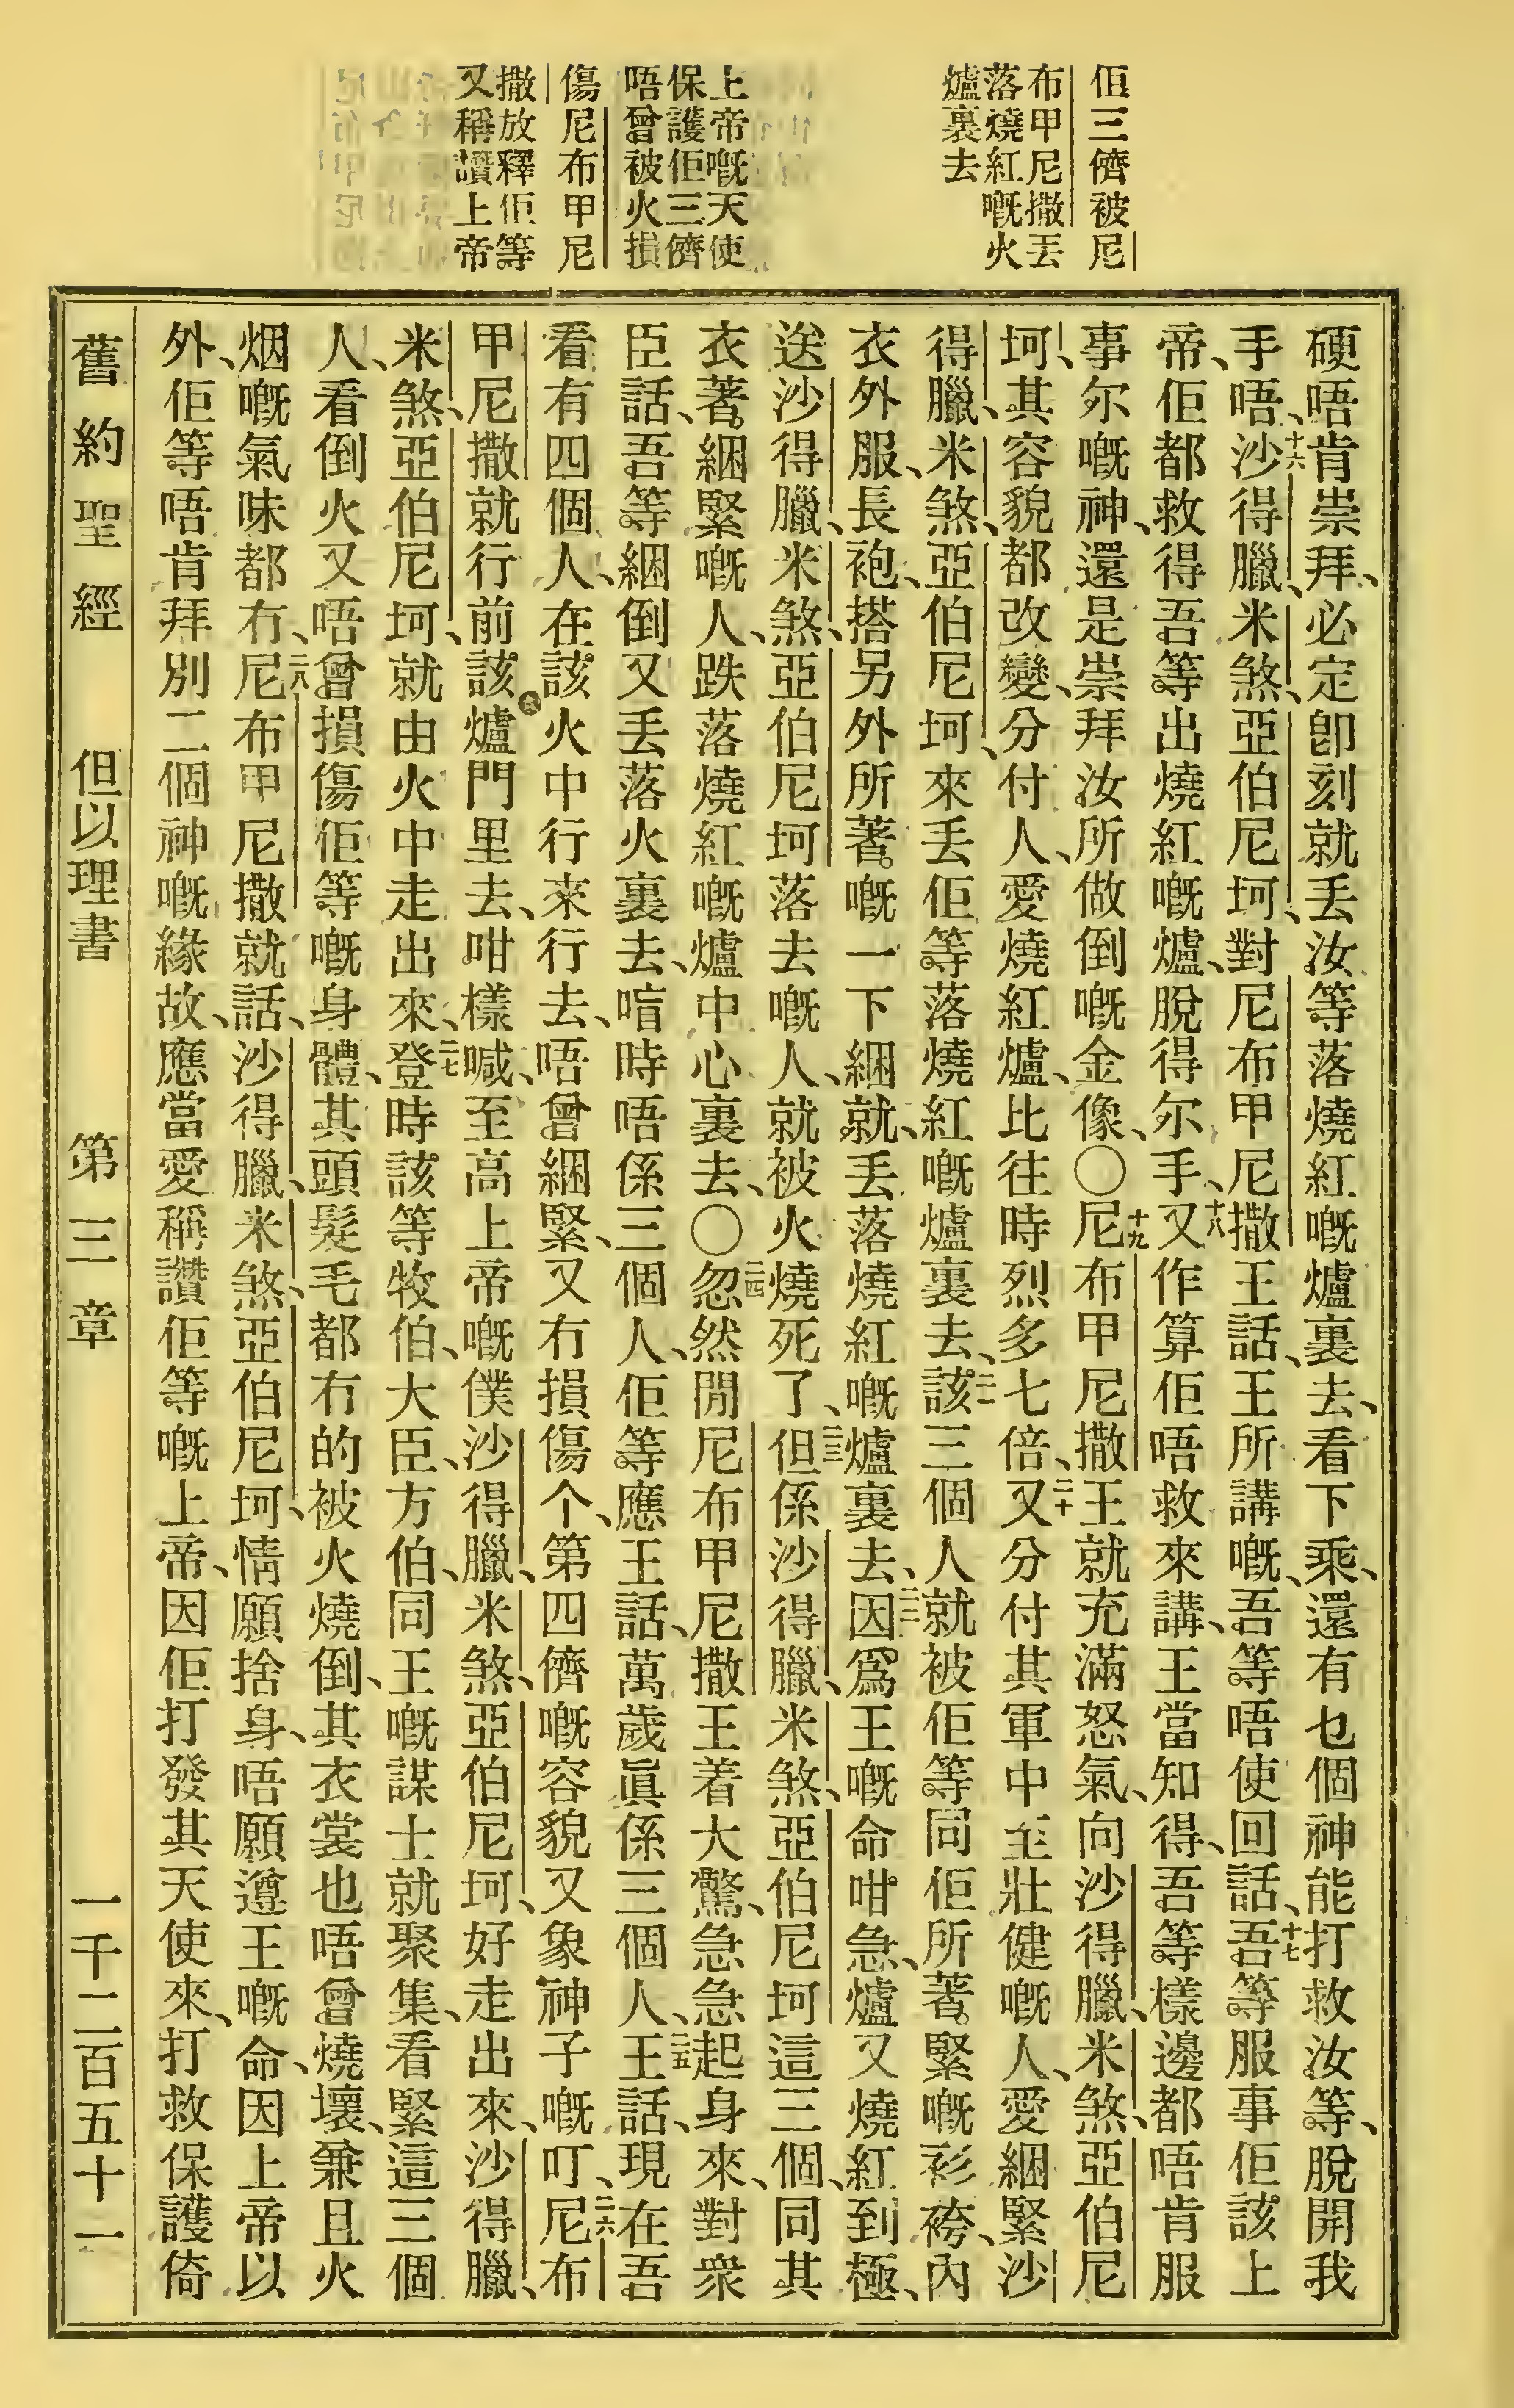 佢三儕被尼
布甲尼撒丟
落燒紅嘅火
爐裏去
上帝嘅天使
保護佢三儕
唔曾被火損
傷尼布甲尼
撒放釋佢等
又稱讚上帝
硬唔肯崇拜、必定卽刻就丟汝等落燒紅嘅爐裏去、看下乘、還有乜個神能打救汝等、脫開我
手唔、十六沙得臘、米煞、亞伯尼坷、對尼布甲尼撒王話、王所講嘅、吾等唔使回話、十七吾等服事佢該上
帝、佢都救得吾等出燒紅嘅爐、脫得尔手、十八又作算佢唔救來講、王當知得、吾等樣邊都唔肯服
事尔嘅神、還是崇拜汝所做倒嘅金像、〇十九尼布甲尼撒王就充滿怒氣、向沙得臘、米煞、亞伯尼
坷、其容貌都改變、分付人、愛燒紅爐、比往時烈多七倍、二十又分付其軍中至壯健嘅人、愛綑緊沙
得臘、米煞、亞伯尼坷、來丟佢等落燒紅嘅爐裏去、二一該三個人就被佢等同佢所著緊嘅衫袴、內
衣外服、長袍、搭另外所著嘅一下綑就、丟落燒紅嘅爐裏去、二二因爲王嘅命咁急、爐又燒紅到極、
送沙得臘、米煞、亞伯尼坷落去嘅人、就被火燒死了、二三但係沙得臘、米煞、亞伯尼坷這三個、同其
衣著、綑緊嘅人、跌落燒紅嘅爐中心裏去、〇二四忽然閒尼布甲尼撒王着大驚、急急起身來、對衆
臣話、吾等綑倒又丟落火裏去、啃時唔係三個人、佢等應王話、萬歲眞係三個人、二五王話、現在吾
看有四個人、在該火中行來行去、唔曾綑緊、又冇損傷个、第四儕嘅容貌又象神子嘅叮、二六尼布
甲尼撒就行前該爐門里去、咁樣喊、至高上帝嘅僕沙得臘、米煞、亞伯尼坷、好走出來、沙得臘、
米煞、亞伯尼坷、就由火中走出來、二七登時該等牧伯、大臣、方伯、同王嘅謀士就聚集、看緊這三個
人、看倒火又唔曾損傷佢等嘅身體、其頭髮毛都冇的被火燒倒、其衣裳也唔曾燒壞、兼且火
烟嘅氣味都冇、二八尼布甲尼撒就話、沙得臘、米煞、亞伯尼坷情願捨身、唔願遵王嘅命、因上帝以
外、佢等唔肯拜別二個神嘅緣故、應當愛稱讚佢等嘅上帝、因佢打發其天使來、打救保護倚
舊約聖經　但以理書　第三章　一千二百五十一